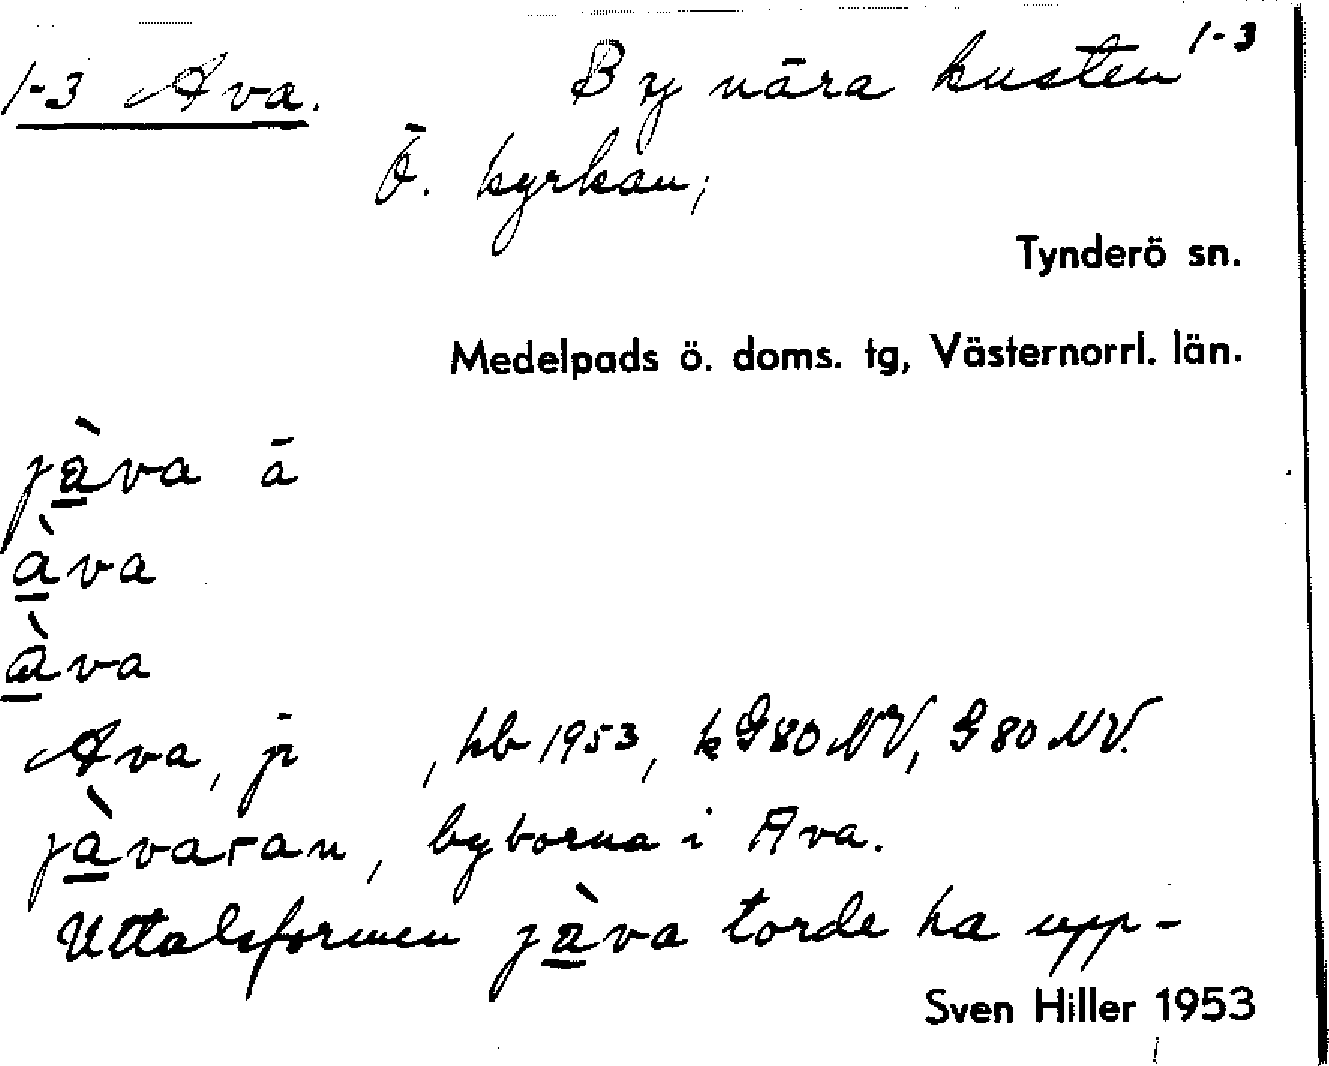 1-3 Ava. By nära kusten 1-3
Ö. kyrkan;
Tynderö sn.
Medelpads ö. doms. tg, Västernorrl. län.
jàva ā
àva
àva
Ava, , hb 1953, k G80 NV, G 80 NV.
jàvaran, byborna i Ava.
Uttalsformen jàva torde ha upp-
Sven Hiller 1953